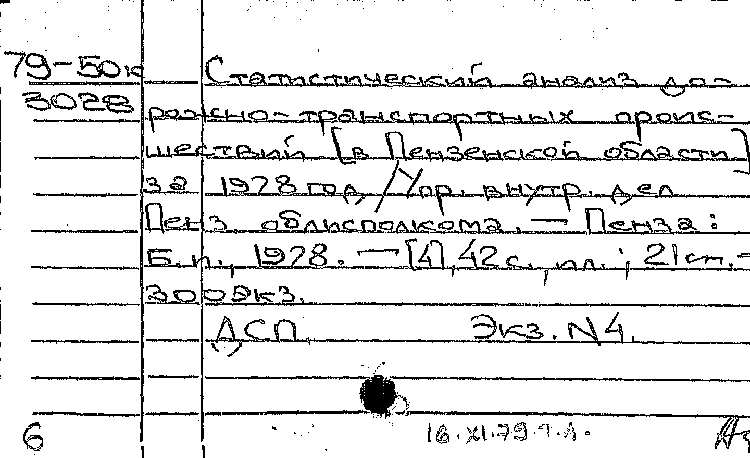 79-50к
3028
Статистический анализ до-
рожно-транспортных проис-
шествий [в Пензенской области]
за 1978 год / Упр. внутр. дел
Пенз. облисполкома. — Пенза:
Б.и., 1978. — [4], 42 с., ил.; 21 см. —
300 экз.
ДСП Экз. N4.
6 16.XI.79